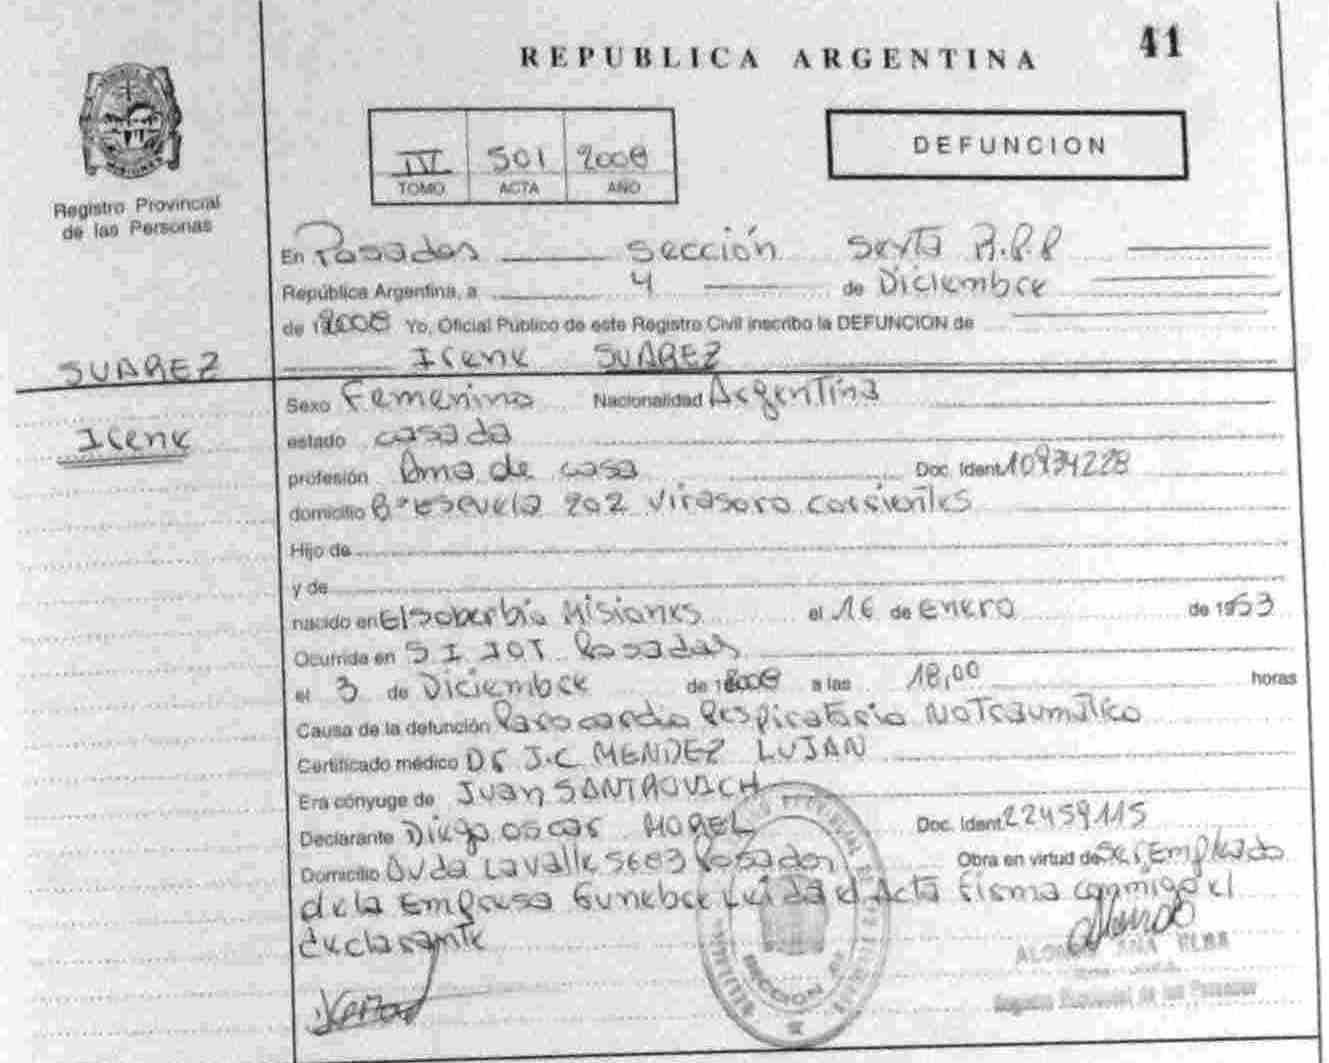 41
REPUBLICA ARGENTINA
DEFUNCION
IV 501 2008
TOMO ACTA AÑO
MISIONES
Registro Provincial
de las Personas
En Posadas sección sexta R.P.P
República Argentina, a 4 de Diciembre
de 2008 Yo, Oficial Público de este Registro Civil inscribo la DEFUNCION de
Irene SUAREZ
SUAREZ
Irene
Sexo Femenino Nacionalidad Argentina
estado casada
profesión Ama de casa Doc. Ident. 10934228
domicilio Bº escuela 202 Virasoro Corrientes
Hijo de
y de
nacido en El Soberbio Misiones el 16 de Enero de 1953
Ocurrida en Posadas
el 3 de Diciembre de 2008 a las 18,00 horas
Causa de la defunción Paro cardio Respiratorio No Traumático
Certificado médico Dr J.C MENDEZ LUJAN
Era cónyuge de Juan SANTROVICH
Declarante Diego Oscar MOREL Doc. Ident. 22459115
Domicilio Avda Lavalle 5683 Posadas Obra en virtud de ser Empleado
de la Empresa Funebre Leida el Acta firma conmigo el
declarante
ANA ELBA
Registro Provincial de las Personas